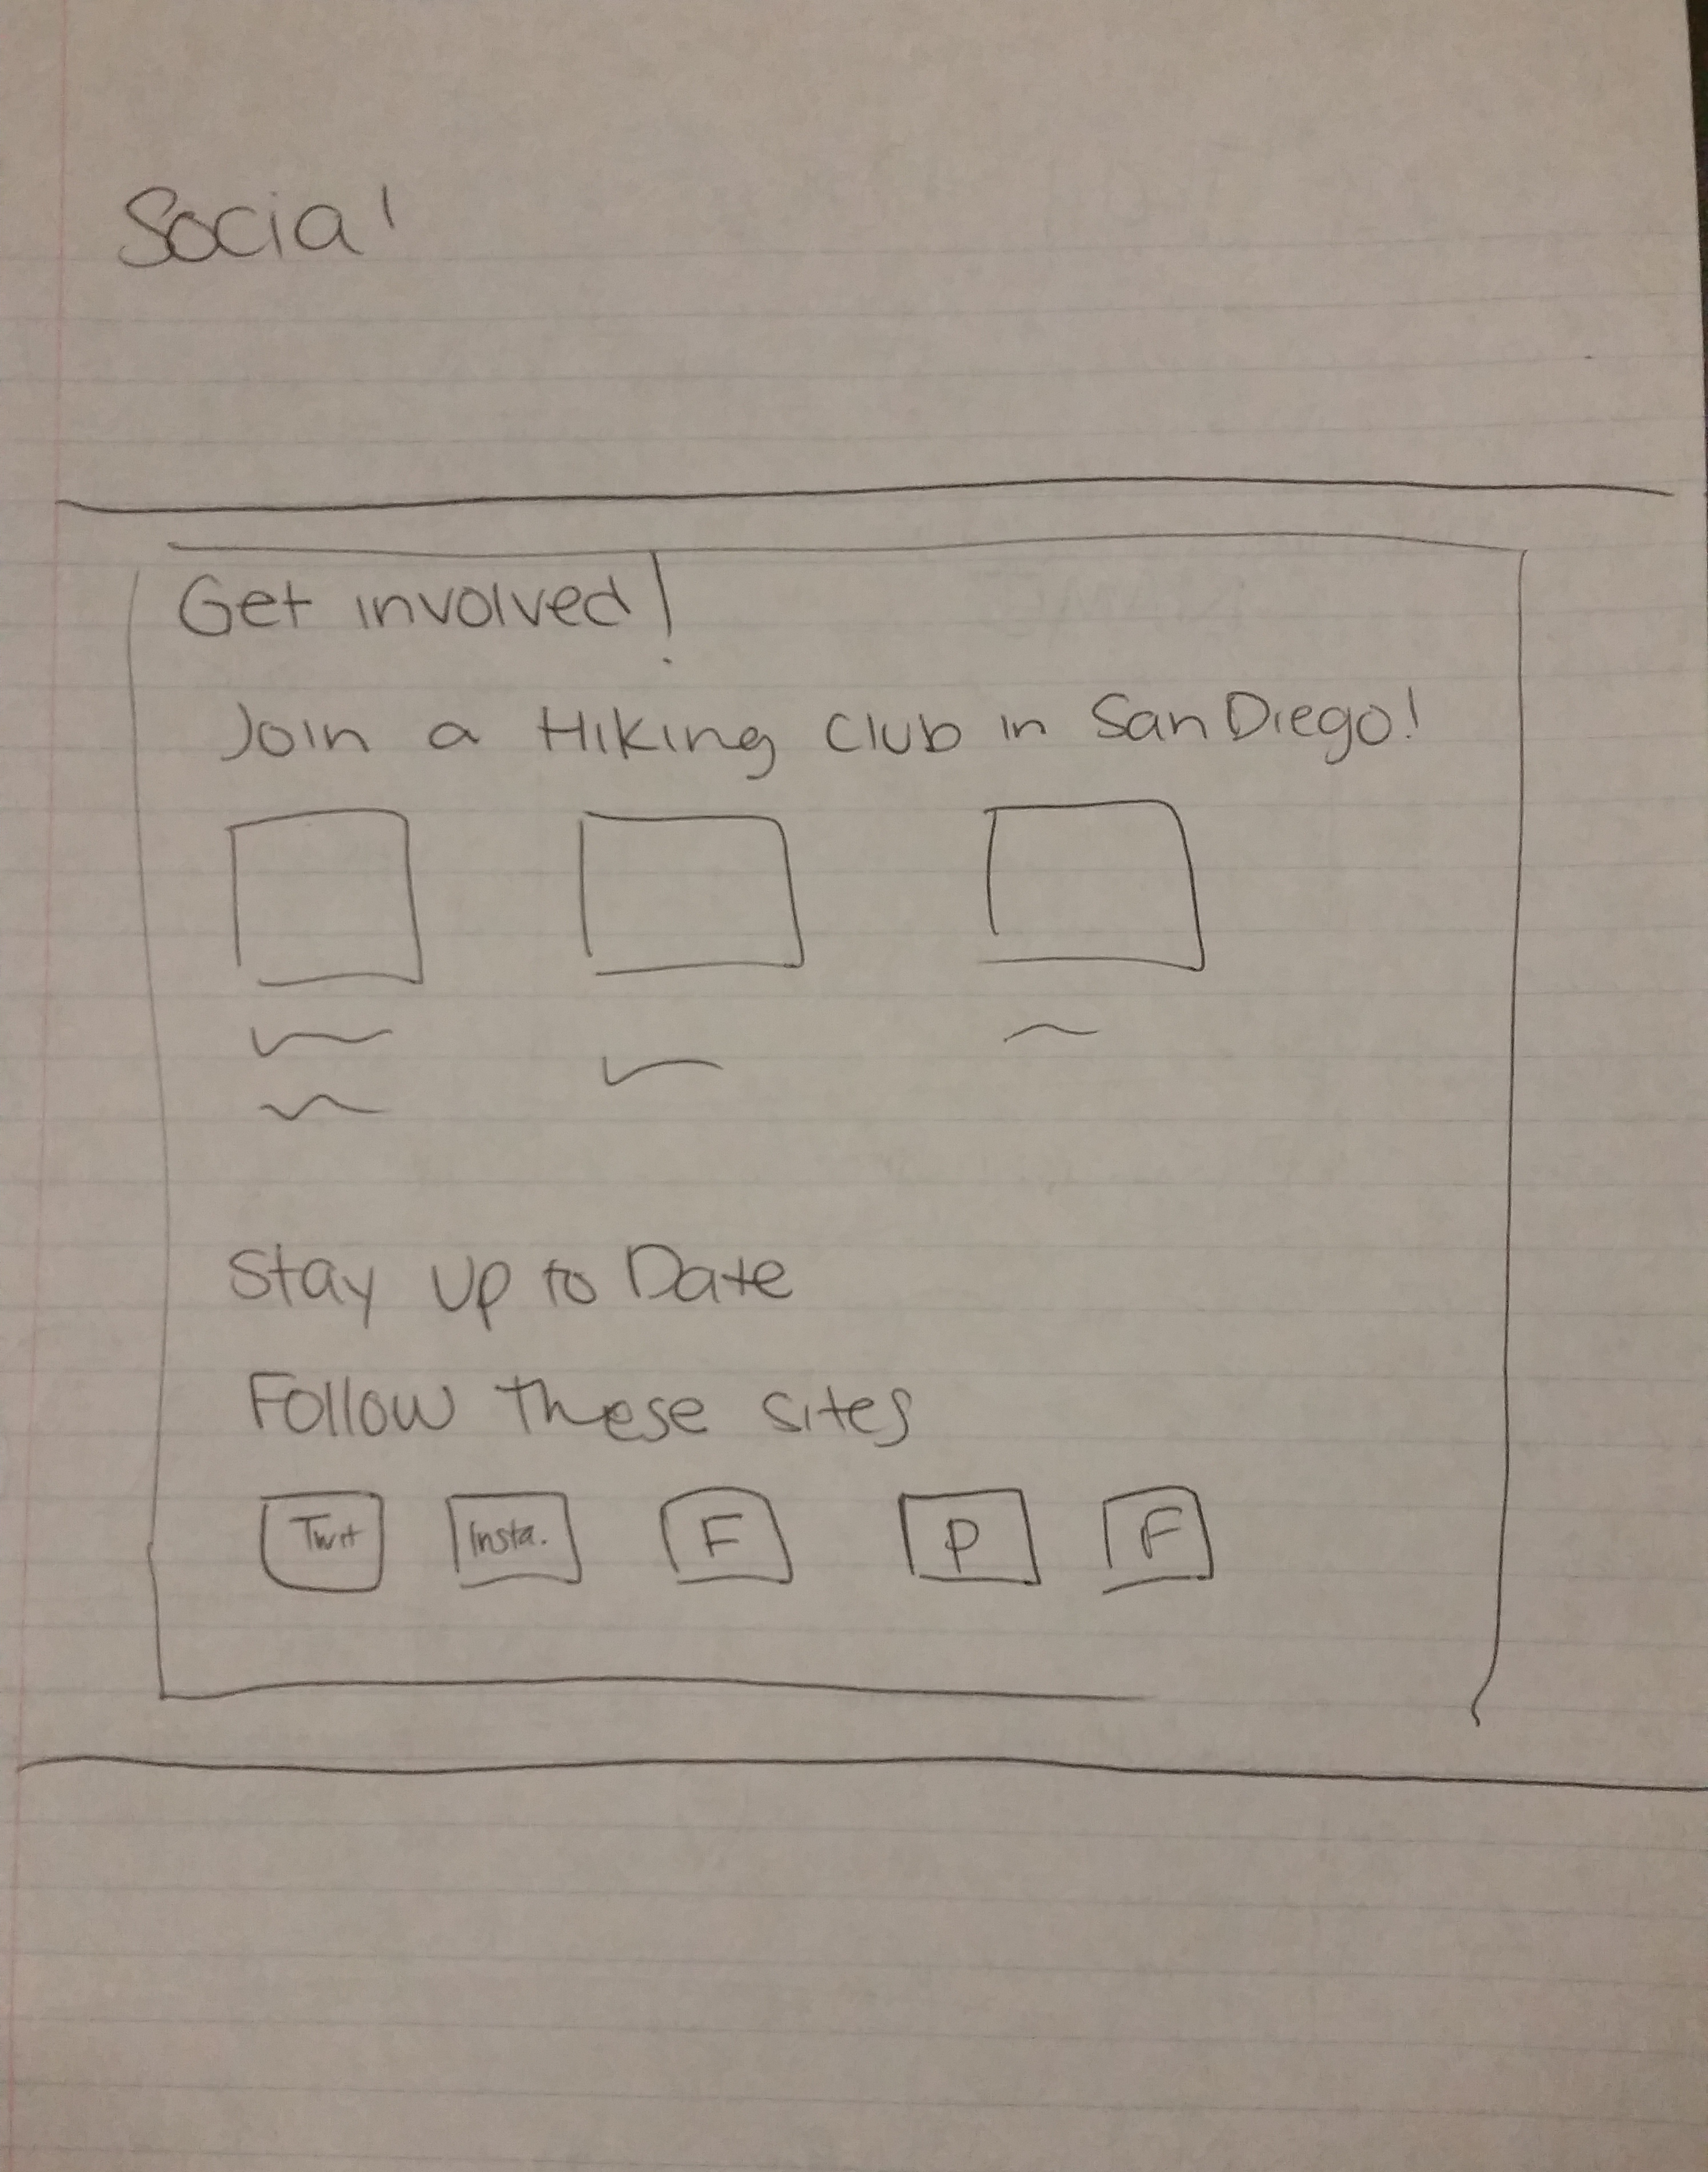 Social
Get involved!
Join a Hiking Club in San Diego!
Stay up to Date
Follow these sites
Twit Insta. F P F